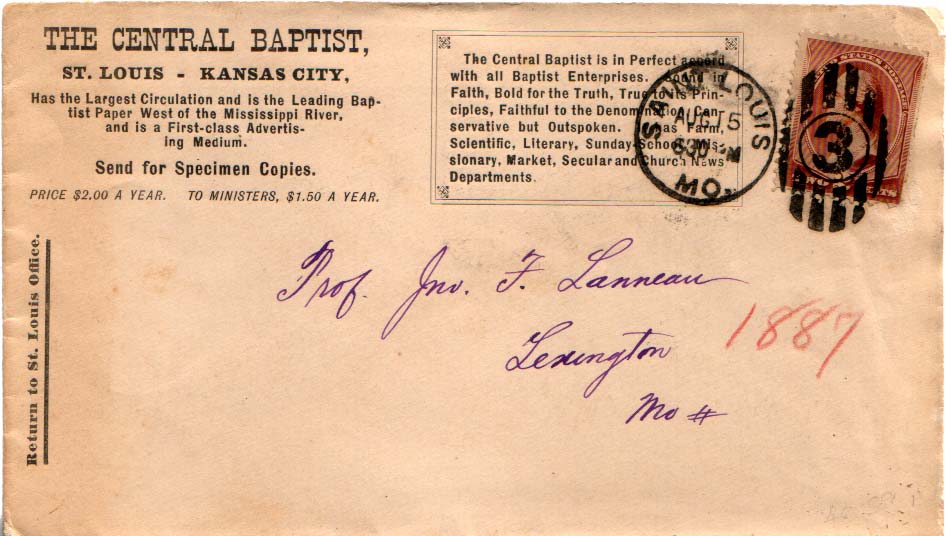 THE CENTRAL BAPTIST,
ST. LOUIS - KANSAS CITY,
Has the Largest Circulation and is the Leading Bap-
tist Paper West of the Mississippi River,
and is a First-class Advertis-
ing Medium.
Send for Specimen Copies.
PRICE $2.00 A YEAR. TO MINISTERS, $1.50 A YEAR.
The Central Baptist is in Perfect accord
with all Baptist Enterprises. Sound in
Faith, Bold for the Truth, True to its Prin-
ciples, Faithful to the Denomination, Con-
servative but Outspoken. Has Farm,
Scientific, Literary, Sunday-School, Mis-
sionary, Market, Secular and Church News
Departments.
SAINT LOUIS
AUG 15
630 PM
MO.
UNITED STATES POSTAGE
3
CENTS
Return to St. Louis Office.
Prof. Jno. F. Lanneau
Lexington
Mo #
1887